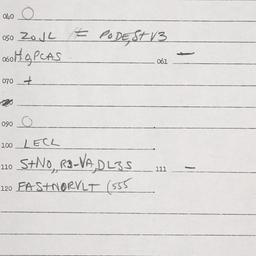 040 O
050 ZOJL = PODE,St V3
060 HgPCAS 061 —
070 +
090 O
100 LECL
110 S+NO,, R3-VA,DL3S 111 —
120 FAS+NORVLT (555